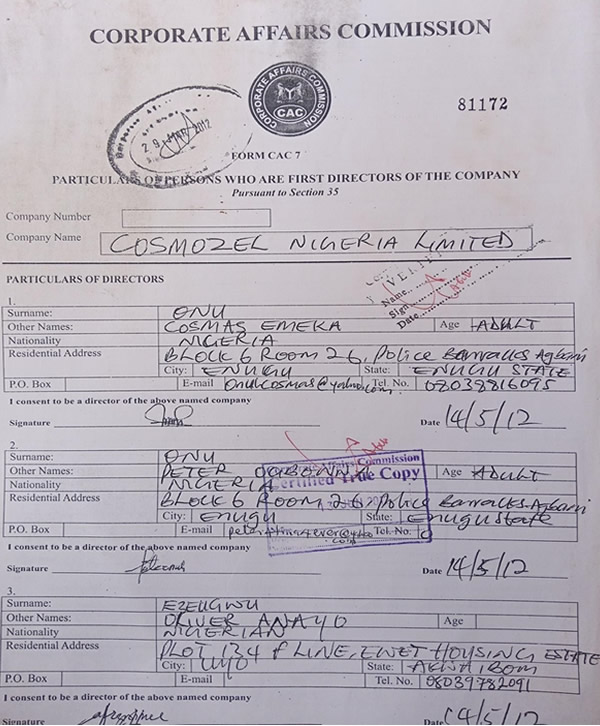 CORPORATE AFFAIRS COMMISSION
CORPORATE AFFAIRS COMMISSION
CAC
81172
29 MAR 2012
FORM CAC 7
PARTICULARS OF PERSONS WHO ARE FIRST DIRECTORS OF THE COMPANY
Pursuant to Section 35
Company Number
Company Name COSMOZEL NIGERIA LIMITED
Name
Sign
Date
PARTICULARS OF DIRECTORS
1.
Surname: ONU
Other Names: COSMAS EMEKA Age ADULT
Nationality NIGERIA
Residential Address BLOCK 6 ROOM 26, Police Barracks Agbani
City: ENUGU State: ENUGU STATE
P.O. Box E-mail Tel. No. 08038816095
I consent to be a director of the above named company
Signature Date 14/5/12
2.
Surname: ONU
Other Names: PETER OGBONNA Age ADULT
Nationality NIGERIA
Affairs Commission
Certified True Copy
Residential Address BLOCK 6 ROOM 26, Police Barracks Agbani
City: ENUGU State: Enugu State
P.O. Box E-mail Tel. No.
I consent to be a director of the above named company
Signature Date 14/5/12
3.
Surname: EZEUGWU
Other Names: OLIVER ANAYO Age
Nationality NIGERIAN
Residential Address PLOT 134 F LINE, EWET HOUSING ESTATE
City: UYO State: AKWA IBOM
P.O. Box E-mail Tel. No. 08039782091
I consent to be a director of the above named company
Signature Date 14/5/12